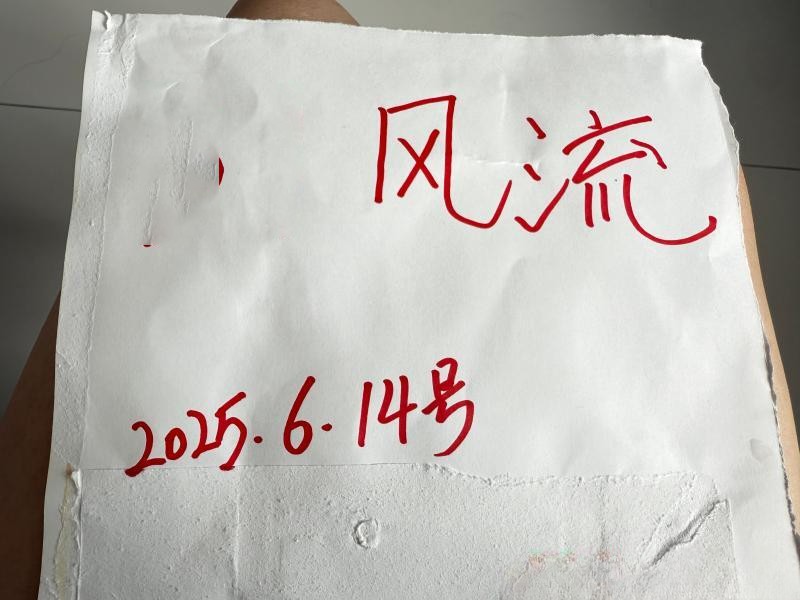 风流
2025.6.14号